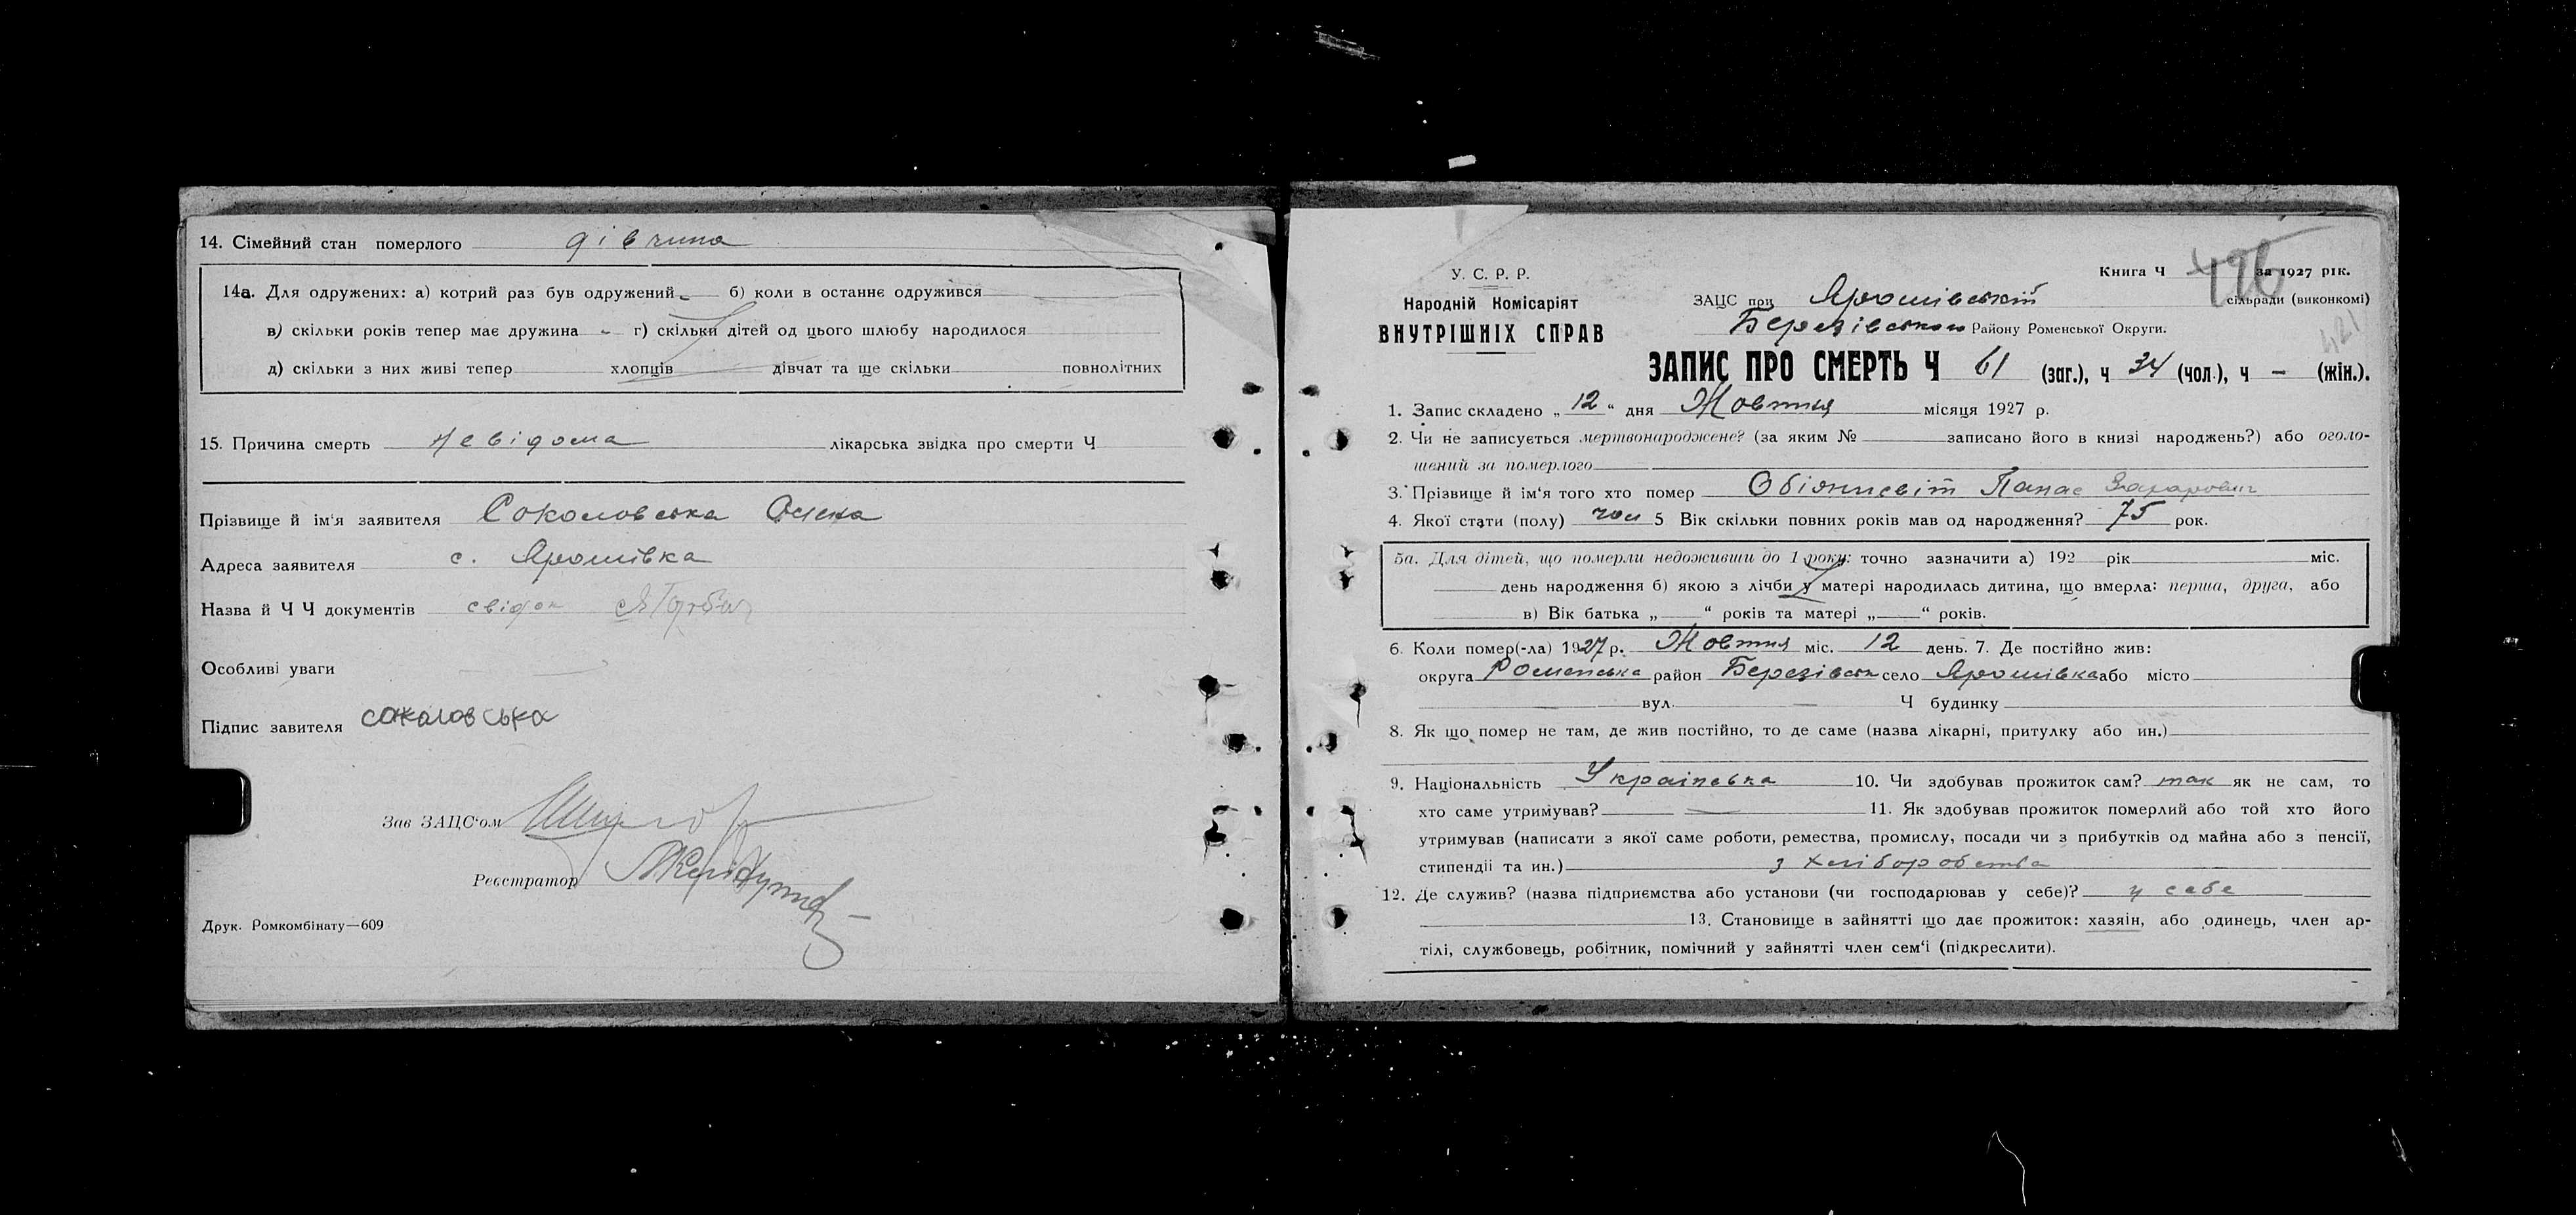 14. Сімейний стан померлого дівчина
14а. Для одружених: а) котрий раз був одружений - б) коли в останнє одружився
в) скільки років тепер має дружина - г) скільки дітей од цього шлюбу народилося
д) скільки з них живі тепер хлопців дівчат та ще скільки повнолітних
15. Причина смерть невідома лікарська звідка про смерти Ч
Прізвище й ім'я заявителя Соколовська Олена
Адреса заявителя с. Ярошівка
Назва й Ч Ч документів свідок
Особливі уваги
Підпис завителя Сокаловська
Зав ЗАЦС'ом
Реєстратор
Друк. Ромкомбінату—609
У. С. Р. Р.
Народній Комісаріят
ВНУТРІШНІХ СПРАВ
Книга Ч за 1927 рік.
196
421
ЗАЦС при Ярошівській сільради (виконкомі)
Березівського Району Роменської Округи.
ЗАПИС ПРО СМЕРТЬ Ч 61 (заг.), ч 34 (чол.), ч — (жін.).
1. Запис складено „ 12 “ дня Жовтня місяця 1927 р.
2. Чи не записується мертвонароджене? (за яким № записано його в книзі народжень?) або оголо-
шений за померлого
3. Прізвище й ім'я того хто помер Обіянисвіт Панас Захарович
4. Якої стати (полу) чол 5 Вік скільки повних років мав од народження? 75 рок.
5а. Для дітей, що померли недоживши до 1 року: точно зазначити а) 192 рік міс.
день народження б) якою з лічби у матері народилась дитина, що вмерла: перша, друга, або
в) Вік батька „ “ років та матері „ “ років.
6. Коли помер(-ла) 1927 р. Жовтня міс. 12 день. 7. Де постійно жив:
округа Роменська район Березівськ село Ярошівка або місто
вул. Ч будинку
8. Як що помер не там, де жив постійно, то де саме (назва лікарні, притулку або ин.)
9. Національність Українська 10. Чи здобував прожиток сам? так як не сам, то
хто саме утримував? — 11. Як здобував прожиток померлий або той хто його
утримував (написати з якої саме роботи, ремества, промислу, посади чи з прибутків од майна або з пенсії,
стипендіі та ин.) з хліборобства
12. Де служив? (назва підприємства або установи (чи господарював у себе)? у себе
13. Становище в зайнятті що дає прожиток: хазяїн, або одинець, член ар-
тілі, службовець, робітник, помічний у зайнятті член сем'ї (підкреслити).